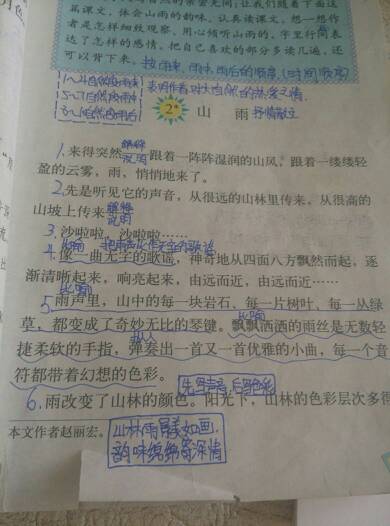 篇课文，体会山雨的韵味。认真读课文，想一想作
者是怎样细致观察、用心倾听山雨的，字里行间表
达了怎样的感情。把自己喜欢的部分多读几遍，还
可以背下来。按雨来、雨中、雨后的顺序。(时间顺序)
表明作者对大自然的热爱之情。
2* 山 雨 抒情散文
1.来得突然——跟着一阵阵湿润的山风，跟着一缕缕轻
盈的云雾，雨，悄悄地来了。
2.先是听见它的声音，从很远的山林里传来，从很高的
山坡上传来——
3.沙啦啦，沙啦啦……
比喻
4.像一曲无字的歌谣，神奇地从四面八方飘然而起，逐
渐清晰起来，响亮起来，由远而近，由远而近……
比喻
5.雨声里，山中的每一块岩石、每一片树叶、每一丛绿
比喻
草，都变成了奇妙无比的琴键。飘飘洒洒的雨丝是无数轻
拟人
捷柔软的手指，弹奏出一首又一首优雅的小曲，每一个音
符都带着幻想的色彩。
先写声音 后写色彩
6.雨改变了山林的颜色。阳光下，山林的色彩层次多得
本文作者赵丽宏。
山林雨景美如画，
韵味绵绵寄深情